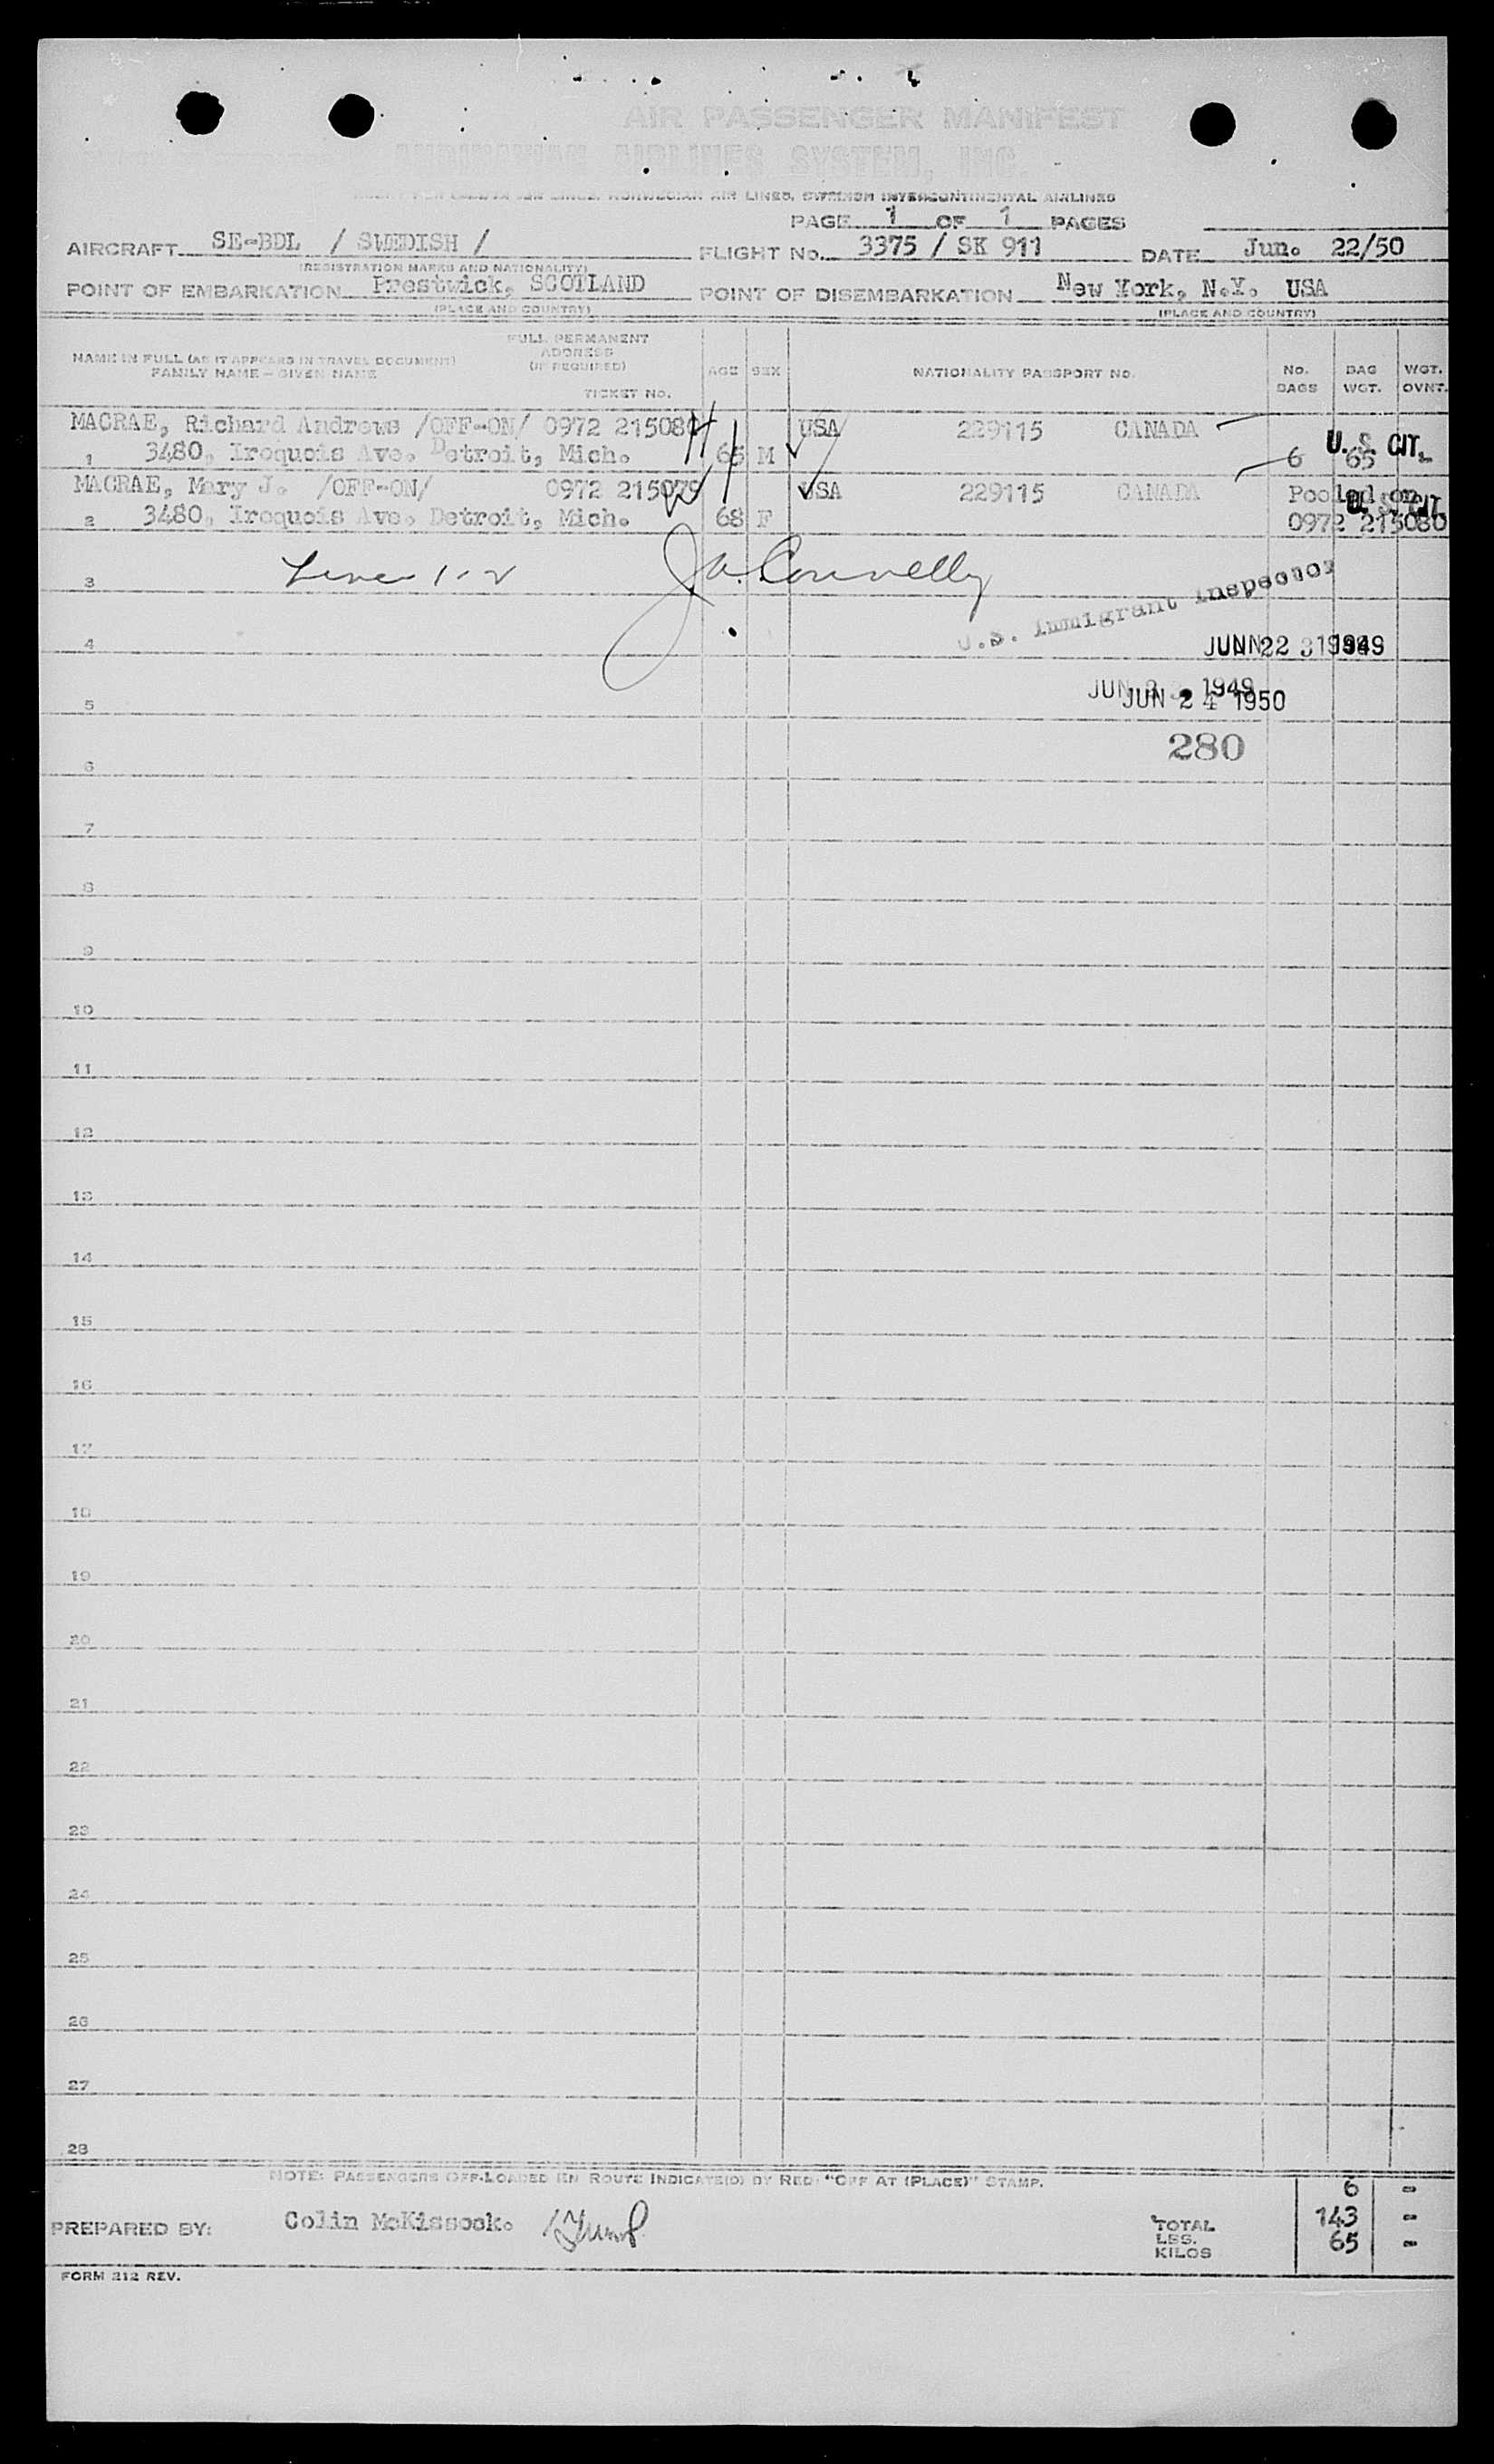 AIR PASSENGER MANIFEST
ANDINAVIAN AIRLINES SYSTEM, INC.
AIR LINES, NORWEGIAN AIR LINES, SWEDISH INTERCONTINENTAL AIRLINES
PAGE 1 OF 1 PAGES
AIRCRAFT SE-BDL / SWEDISH / FLIGHT No. 3375 / SK 911 DATE Jun. 22/50
(REGISTRATION MARKS AND NATIONALITY)
POINT OF EMBARKATION Prestwick, SCOTLAND POINT OF DISEMBARKATION New York, N.Y. USA
(PLACE AND COUNTRY) (PLACE AND COUNTRY)
NAME IN FULL (AS IT APPEARS IN TRAVEL DOCUMENT)
FAMILY NAME - GIVEN NAME
FULL PERMANENT
ADDRESS
(IF REQUIRED)
TICKET No.
AGE SEX NATIONALITY PASSPORT NO. No. BAGS BAG WGT. WGT. OVNT.
MACRAE, Richard Andrews /OFF-ON/ 0972 215080 USA 229115 CANADA
1 3480, Iroquois Ave. Detroit, Mich. 65 M 6 65 -
U. S. CIT.
MACRAE, Mary J. /OFF-ON/ 0972 215079 USA 229115 CANADA Pooled on
2 3480, Iroquois Ave. Detroit, Mich. 68 F 0972 215080
U. S. CIT.
3 Lines 1-2 J. A. Connelly
U.S. Immigrant Inspector
4
JUN 22 1949
JUN 1949
JUN 24 1950
5
280
6
7
8
9
10
11
12
13
14
15
16
17
18
19
20
21
22
23
24
25
26
27
28
NOTE: PASSENGERS OFF-LOADED EN ROUTE INDICATE(D) BY RED "OFF AT (PLACE)" STAMP.
6 -
PREPARED BY: Colin McKissock.
TOTAL
LBS. 143 -
KILOS 65 -
FORM 212 REV.